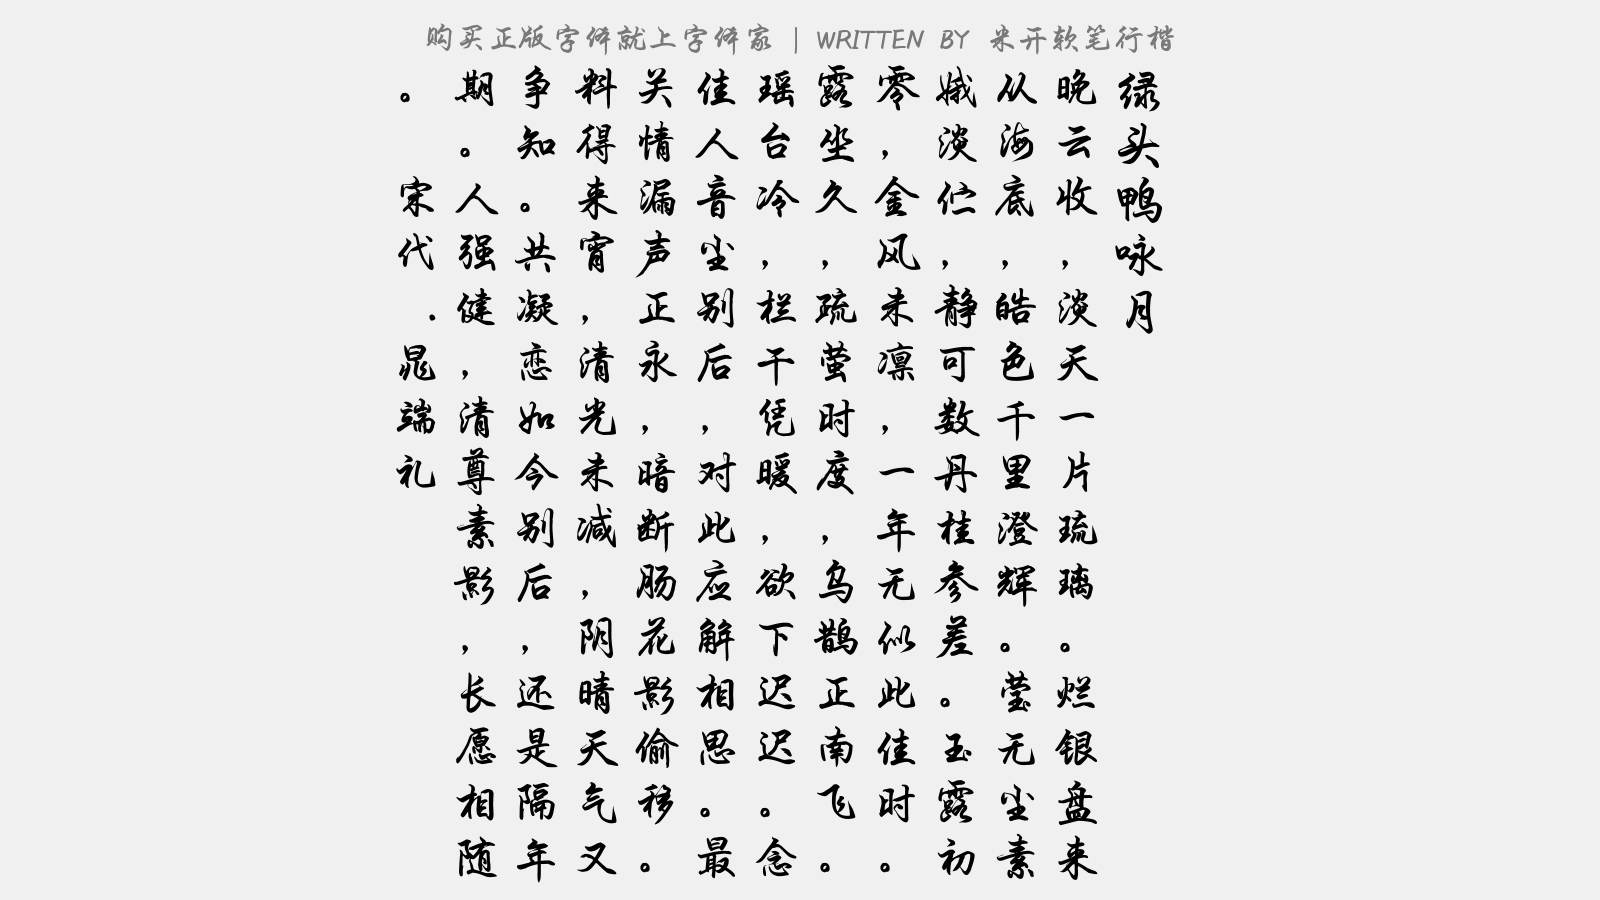 购买正版字体就上字体家 | WRITTEN BY 米开软笔行楷
绿头鸭咏月
晚云收，淡天一片琉璃。烂银盘来
从海底，皓色千里澄辉。莹无尘素
娥淡伫，静可数丹桂参差。玉露初
零，金风未凛，一年无似此佳时。
露坐久，疏萤时度，乌鹊正南飞。
瑶台冷，栏干凭暖，欲下迟迟。念
佳人音尘别后，对此应解相思。最
关情漏声正永，暗断肠花影偷移。
料得来宵，清光未减，阴晴天气又
争知。共凝恋如今别后，还是隔年
期。人强健，清尊素影，长愿相随
。宋代.晁端礼